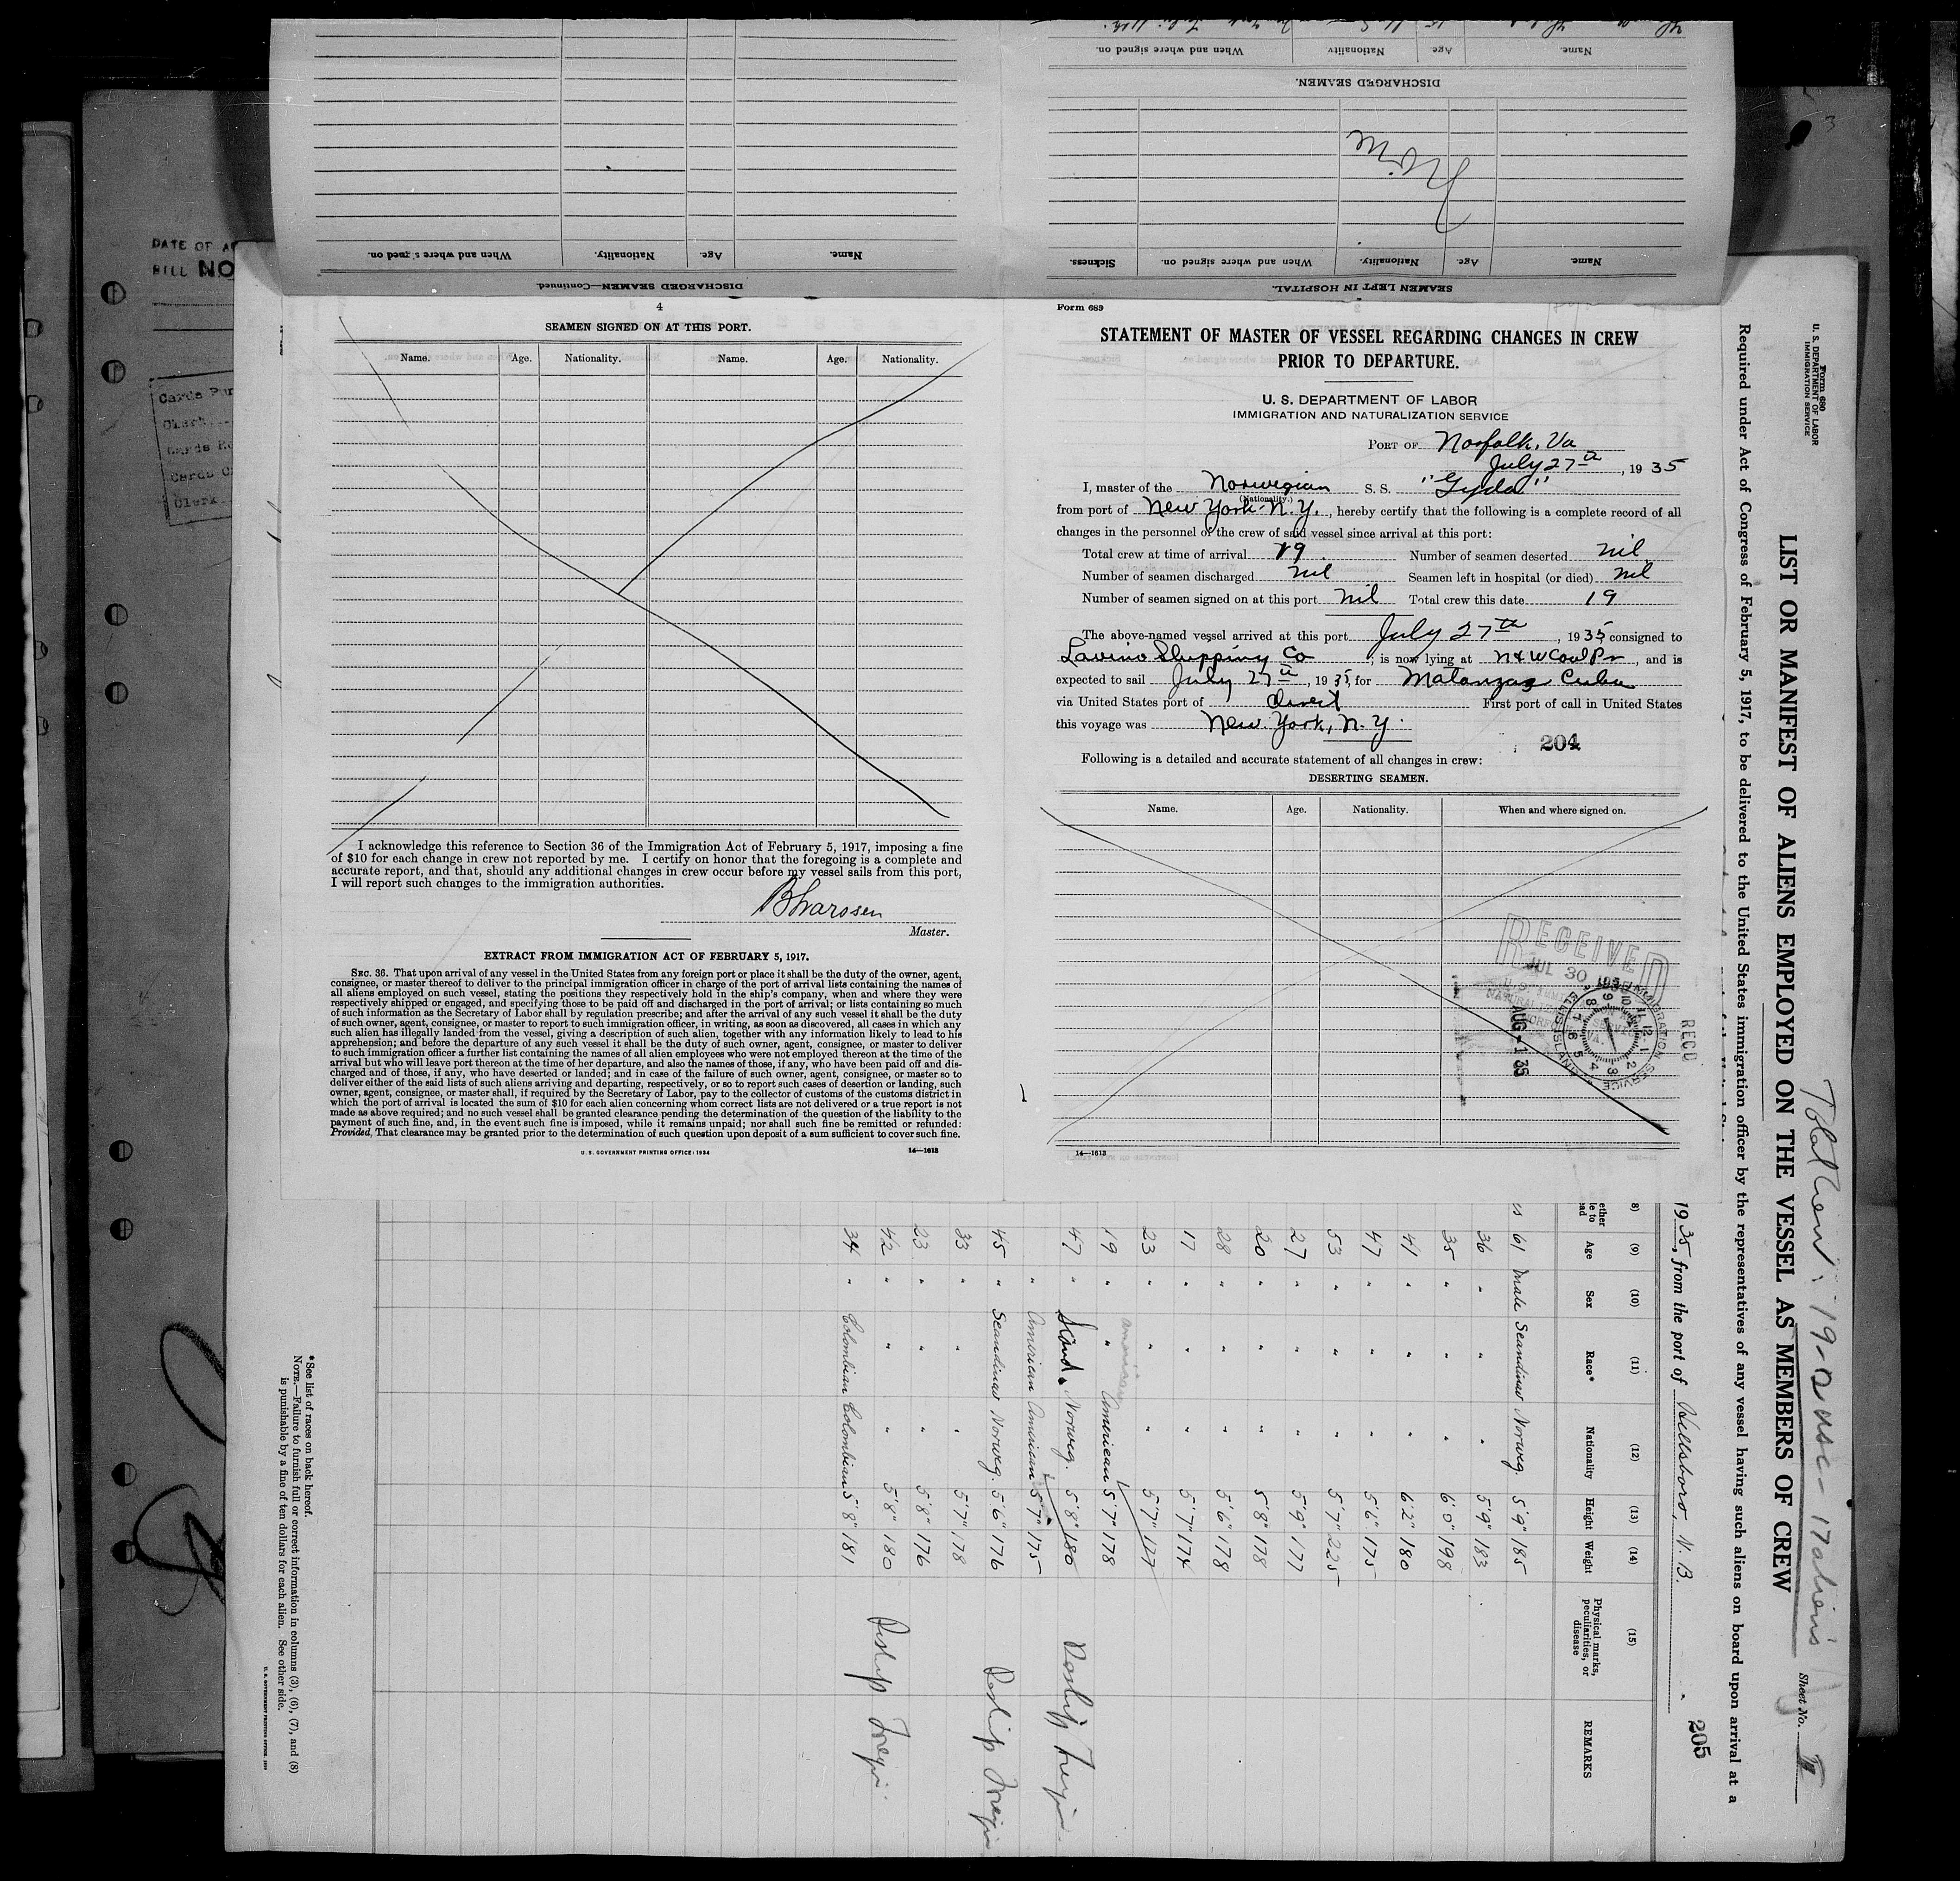 Name. Age. Nationality. When and where signed on.
DISCHARGED SEAMEN.
None
Name. Age. Nationality. When and where signed on. Sickness.
SEAMEN LEFT IN HOSPITAL.
Name. Age. Nationality. When and where signed on.
DISCHARGED SEAMEN—Continued.
4
SEAMEN SIGNED ON AT THIS PORT.
Name. Age. Nationality. Name. Age. Nationality.
I acknowledge this reference to Section 36 of the Immigration Act of February 5, 1917, imposing a fine
of $10 for each change in crew not reported by me. I certify on honor that the foregoing is a complete and
accurate report, and that, should any additional changes in crew occur before my vessel sails from this port,
I will report such changes to the immigration authorities.
B Larssen
Master.
EXTRACT FROM IMMIGRATION ACT OF FEBRUARY 5, 1917.
SEC. 36. That upon arrival of any vessel in the United States from any foreign port or place it shall be the duty of the owner, agent,
consignee, or master thereof to deliver to the principal immigration officer in charge of the port of arrival lists containing the names of
all aliens employed on such vessel, stating the positions they respectively hold in the ship's company, when and where they were
respectively shipped or engaged, and specifying those to be paid off and discharged in the port of arrival; or lists containing so much
of such information as the Secretary of Labor shall by regulation prescribe; and after the arrival of any such vessel it shall be the duty
of such owner, agent, consignee, or master to report to such immigration officer, in writing, as soon as discovered, all cases in which any
such alien has illegally landed from the vessel, giving a description of such alien, together with any information likely to lead to his
apprehension; and before the departure of any such vessel it shall be the duty of such owner, agent, consignee, or master to deliver
to such immigration officer a further list containing the names of all alien employees who were not employed thereon at the time of the
arrival but who will leave port thereon at the time of her departure, and also the names of those, if any, who have been paid off and dis-
charged and of those, if any, who have deserted or landed; and in case of the failure of such owner, agent, consignee, or master so to
deliver either of the said lists of such aliens arriving and departing, respectively, or so to report such cases of desertion or landing, such
owner, agent, consignee, or master shall, if required by the Secretary of Labor, pay to the collector of customs of the customs district in
which the port of arrival is located the sum of $10 for each alien concerning whom correct lists are not delivered or a true report is not
made as above required; and no such vessel shall be granted clearance pending the determination of the question of the liability to the
payment of such fine, and, in the event such fine is imposed, while it remains unpaid; nor shall such fine be remitted or refunded:
Provided, That clearance may be granted prior to the determination of such question upon deposit of a sum sufficient to cover such fine.
U. S. GOVERNMENT PRINTING OFFICE: 1934 14—1613
Form 689
STATEMENT OF MASTER OF VESSEL REGARDING CHANGES IN CREW
PRIOR TO DEPARTURE.
U. S. DEPARTMENT OF LABOR
IMMIGRATION AND NATURALIZATION SERVICE
PORT OF Norfolk, Va
July 27th, 1935
I, master of the Norwegian S. S. "Gyda"
(Nationality.)
from port of New York. N.Y., hereby certify that the following is a complete record of all
changes in the personnel of the crew of said vessel since arrival at this port:
Total crew at time of arrival 19 Number of seamen deserted nil
Number of seamen discharged nil Seamen left in hospital (or died) nil
Number of seamen signed on at this port nil Total crew this date 19
The above-named vessel arrived at this port July 27th, 1935 consigned to
Lavino Shipping Co; is now lying at N & W Coal Pr, and is
expected to sail July 27th, 1935, for Matanzas Cuba
via United States port of direct First port of call in United States
this voyage was New York, N.Y.
204
Following is a detailed and accurate statement of all changes in crew:
DESERTING SEAMEN.
Name. Age. Nationality. When and where signed on.
RECEIVED
JUL 30 1935
AUG - 1 35
IMMIGRATION SERVICE
ELLIS ISLAND
RECD
14—1613
Form 680
U. S. DEPARTMENT OF LABOR
IMMIGRATION SERVICE
Sheet No.
LIST OR MANIFEST OF ALIENS EMPLOYED ON THE VESSEL AS MEMBERS OF CREW
Required under Act of Congress of February 5, 1917, to be delivered to the United States immigration officer by the representatives of any vessel having such aliens on board upon arrival at a
1935, from the port of Hillsboro, N.B.
205
(8) (9) (10) (11) (12) (13) (14) (15)
Age Sex Race* Nationality Height Weight Physical marks, peculiarities, or disease REMARKS
61 Male Scandinav Norweg. 5'9" 185
36 " " " 5'9" 183
35 " " " 6'0" 198
41 " " " 6'2" 180
47 " " " 5'6" 175
53 " " " 5'7" 225
27 " " " 5'9" 177
20 " " " 5'8" 178
28 " " " 5'6" 178
17 " " " 5'7" 174
23 " " " 5'7" 177
american
19 " " American 5'7" 178
47 " Scand. Norweg. 5'8" 180
" American American 5'7" 175
45 " Scandinav Norweg. 5'6" 176
33 " " " 5'7" 178
23 " " " 5'8" 176
42 " " " 5'8" 180
34 " Colombian Colombian 5'8" 181
*See list of races on back hereof.
NOTE.—Failure to furnish full or correct information in columns (3), (6), (7), and (8)
is punishable by a fine of ten dollars for each alien. See other side.
DATE OF
BILL NO
Clerk
Clerk